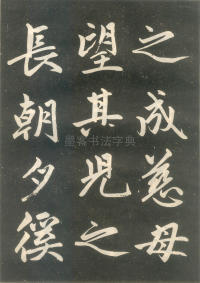 之成慈母
望其兒之
長朝夕徯
书法字典